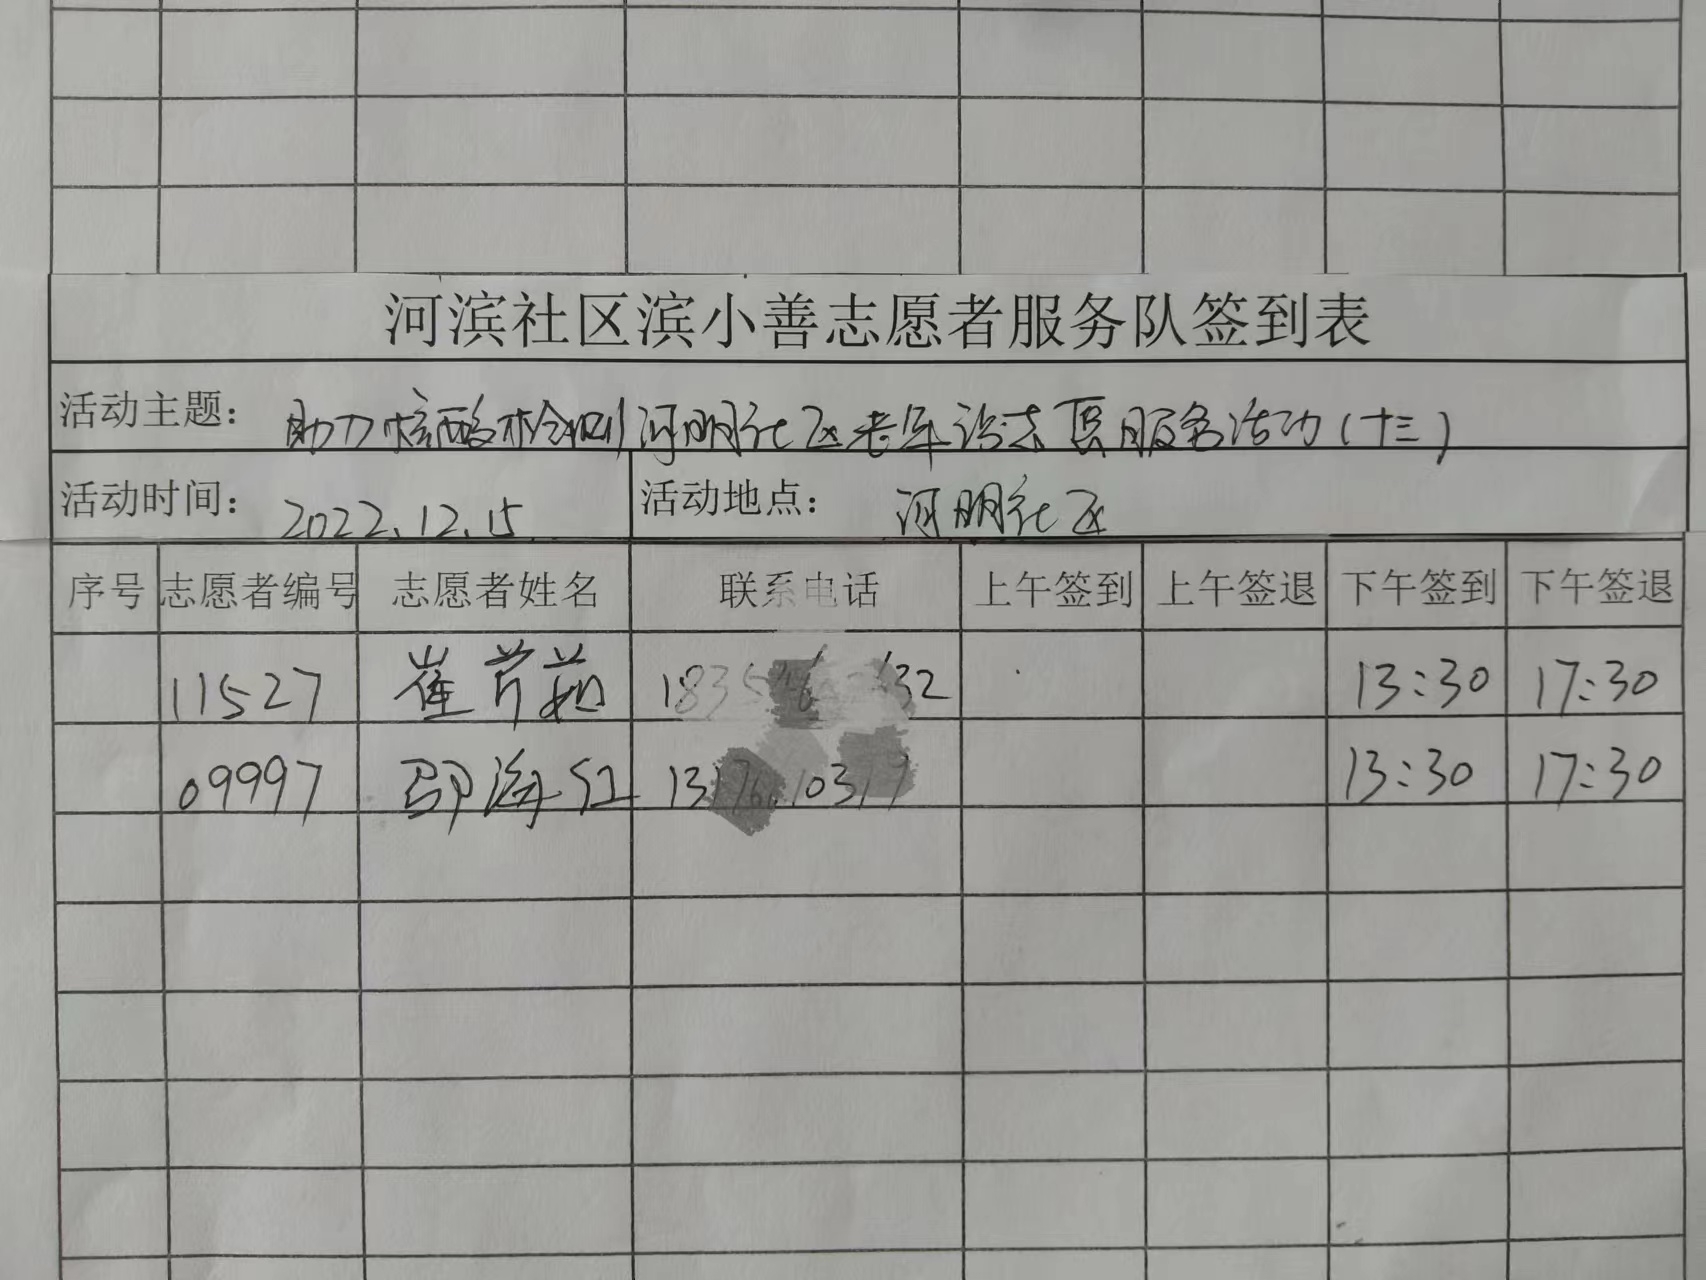 河滨社区滨小善志愿者服务队签到表
活动主题: 助力核酸检测河明社区老年诊志愿服务活动(十三)
活动时间: 2022.12.15 活动地点: 河明社区
序号 志愿者编号 志愿者姓名 联系电话 上午签到 上午签退 下午签到 下午签退
11527 崔芹茹 13:30 17:30
09997 邵海红 13:30 17:30